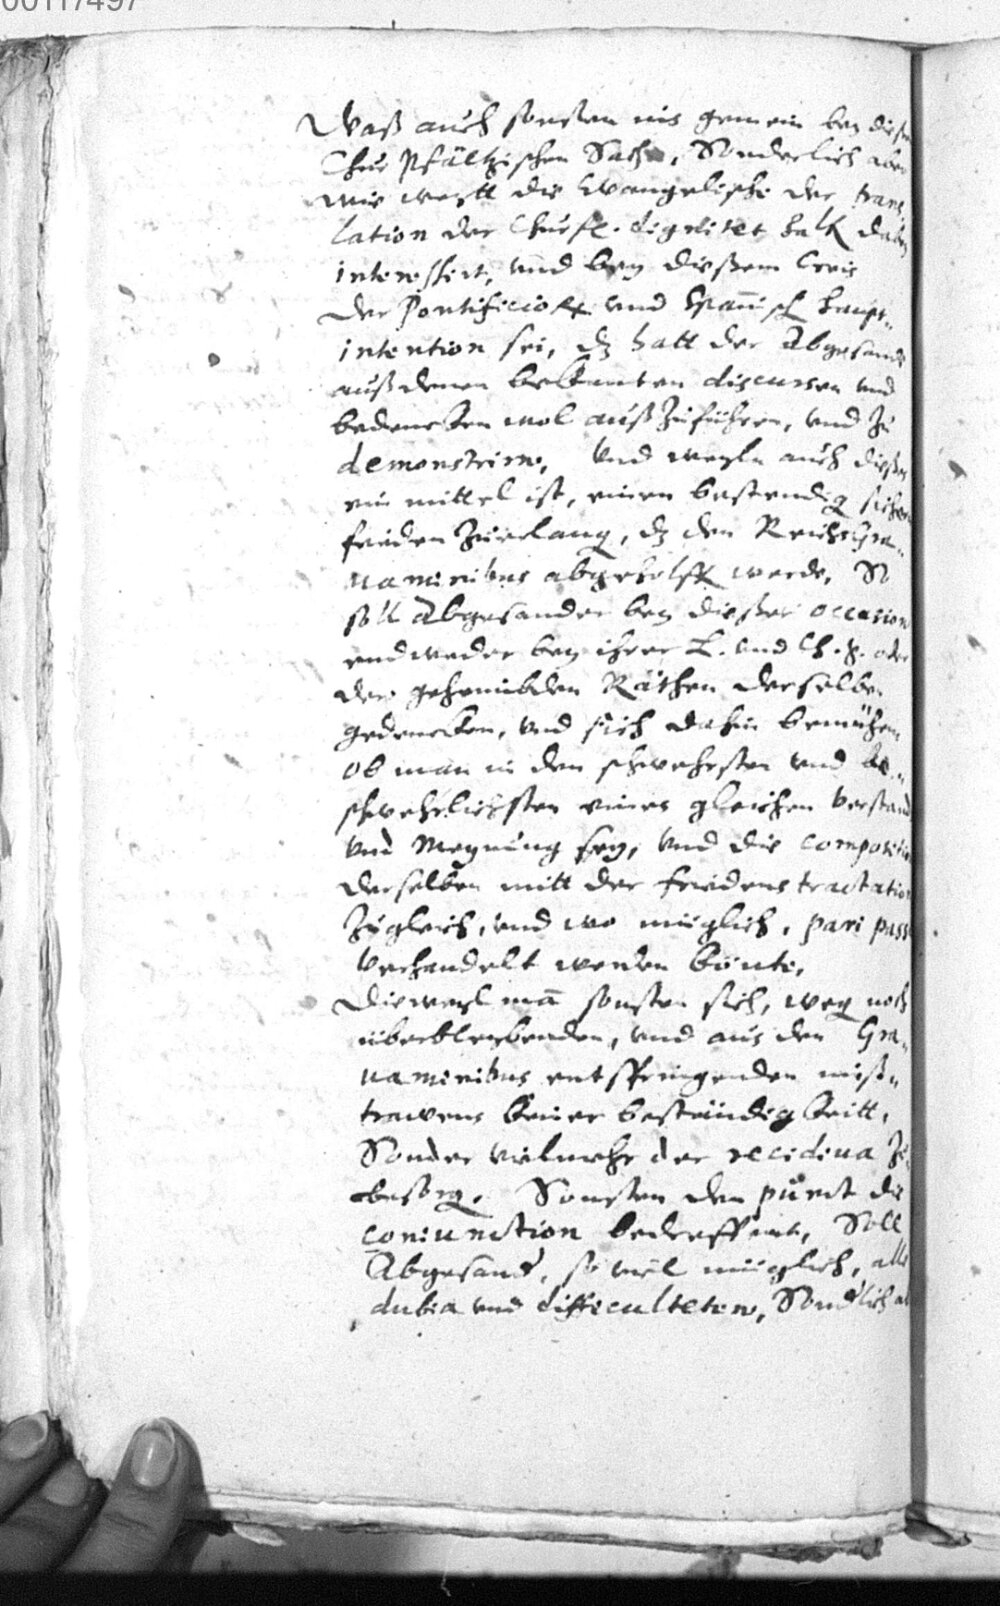 00117497
Waß auch sonsten ins gemein bey dießer
Chur Pfältzischen Sachen, Sonderlich aber
wie weytt die Evangelische der trans-
lation der Churfl. dignitet halb dabey
interessirt, und bey dießem Creis
der Pontificiorum und Spanisch haupt-
intention sei, dz hatt der Abgesande
auß denen bekanten discursen und
bedencken wol außzuführen, und zu
demonstriren, Und weyln auch dießes
ein mittel ist, einen bestendig sichern
frieden zuerlang, dz den Reichs Gra-
vaminibus abgeholffen werde, So
soll Abgesander bey dießer occasion
endweder bey ihrer L. und Ch. F. oder
der geheimbden Räthen derselben
gedencken, und sich dahin bemühen
Ob man in den schwehrsten und be-
schwehrlichsten eines gleichen verstand
und Meynung sey, und die composition
derselben mitt der friedens tractation
zugleich, und wo müglich, pari passu
verhandelt werden könte,
Dieweyl man sonsten sich, weg noch
überbleybenden, und aus den Gra-
vaminibus entspringenden miß-
trawens keiner beständigkeitt,
Sonder vielmehr der recidiva zu
besorg. Sonsten den punct die
coniunction bedreffent, Soll
Abgesand, so viel müglich, alle
dubia und difficulteten, Sonderlich